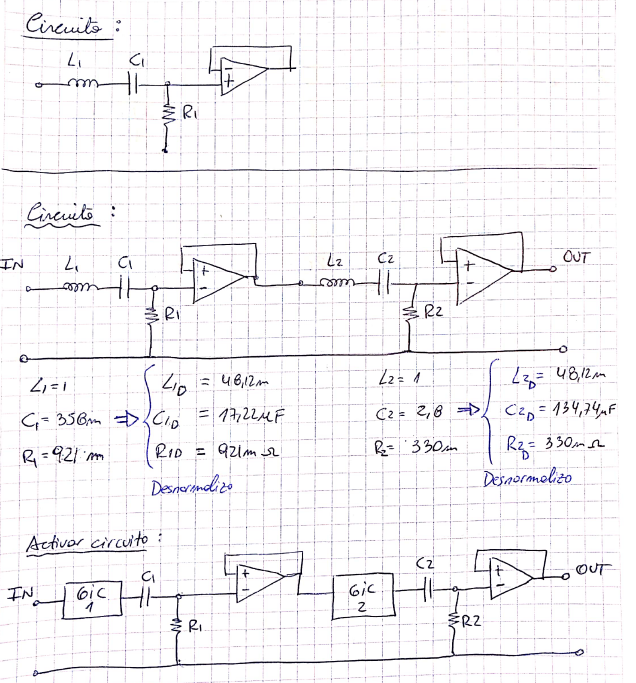 Circuito :
L1 C1
- +
R1
Circuito :
IN L1 C1 + - L2 C2 + - OUT
R1 R2
L1 = 1
C1 = 358m ⇒
R1 = 921 m
L1D = 48,12m
C1D = 17,22μF
R1D = 921m Ω
Desnormalizo
L2 = 1
C2 = 2,8 ⇒
R2 = 330m
L2D = 48,12m
C2D = 134,74μF
R2D = 330m Ω
Desnormalizo
Activar circuito :
IN GIC 1 C1 + - GIC 2 C2 + - OUT
R1 R2